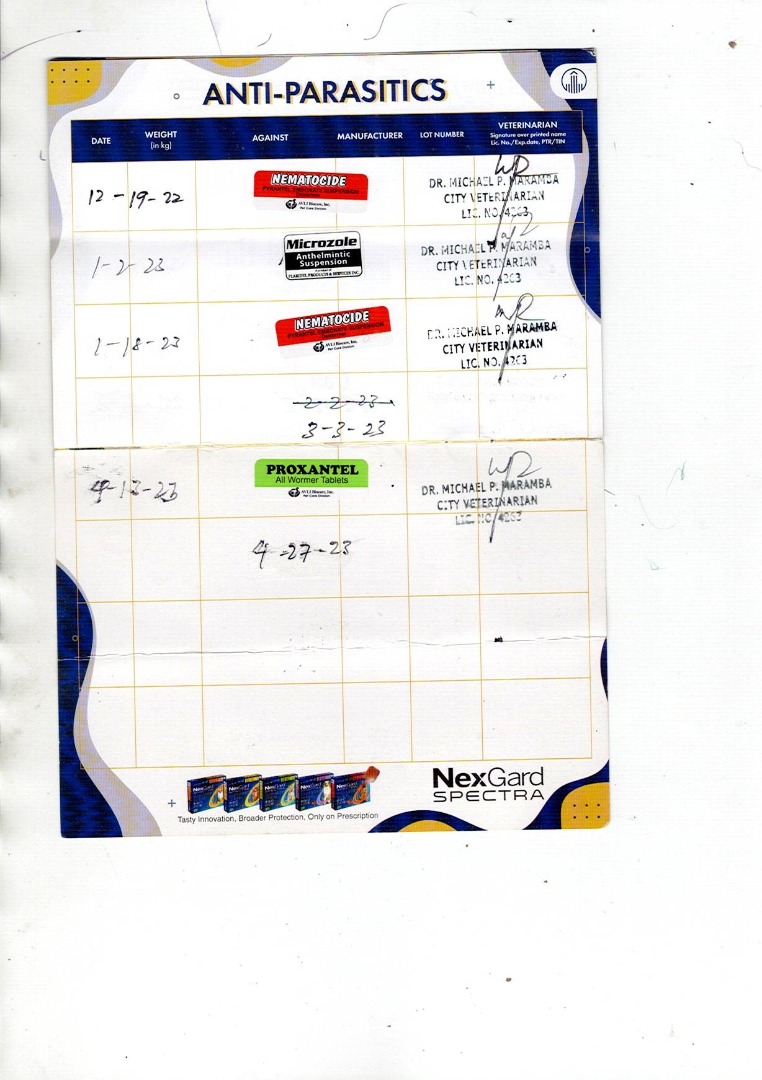 ANTI-PARASITICS
DATE
WEIGHT
(in kg)
AGAINST
MANUFACTURER
LOT NUMBER
VETERINARIAN
Signature over printed name
Lic. No./Exp.date, PTR/TIN
12-19-22
NEMATOCIDE
PYRANTEL EMBONATE SUSPENSION
AVLI Biocare, Inc.
Pet Care Division
DR. MICHAEL P. MARAMBA
CITY VETERINARIAN
LIC. NO. 4263
1-2-23
Microzole
Anthelmintic
Suspension
A product of
PLARIDEL PRODUCTS & SERVICES INC.
DR. MICHAEL P. MARAMBA
CITY VETERINARIAN
LIC. NO. 4263
1-18-23
NEMATOCIDE
PYRANTEL EMBONATE SUSPENSION
AVLI Biocare, Inc.
Pet Care Division
DR. MICHAEL P. MARAMBA
CITY VETERINARIAN
LIC. NO. 4263
2-2-23
3-3-23
4-13-23
PROXANTEL
All Wormer Tablets
AVLI Biocare, Inc.
Pet Care Division
DR. MICHAEL P. MARAMBA
CITY VETERINARIAN
LIC. NO. 4263
4-27-23
NexGard
NexGard
NexGard
NexGard
NexGard
Tasty Innovation, Broader Protection, Only on Prescription
NexGard
SPECTRA